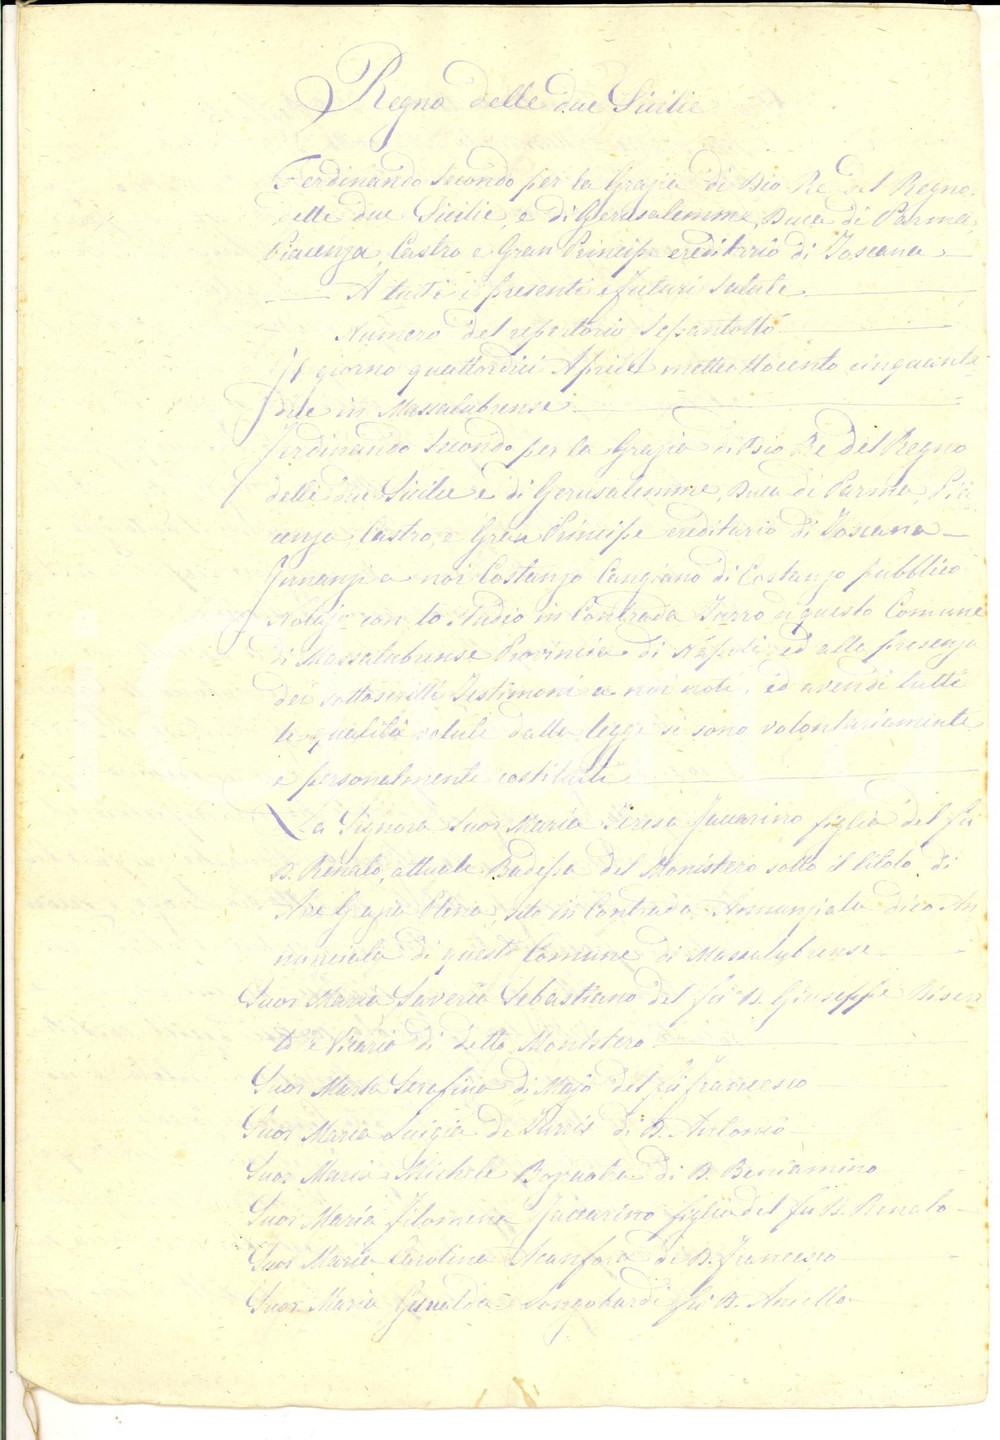 Regno delle due Sicilie
Ferdinando Secondo per la Grazia di Dio Re del Regno
delle due Sicilie, e di Gerusalemme, Duca di Parma,
Piacenza, Castro e Gran Principe ereditario di Toscana
A tutti i presenti e futuri salute
Numero del repertorio Sessantotto
Il giorno quattordici Aprile milleottocento cinquanta
due in Massalubrense
Ferdinando Secondo per la Grazia di Dio Re del Regno
delle due Sicilie e di Gerusalemme, Duca di Parma, Pia
cenza, Castro, e Gran Principe ereditario di Toscana
Innanzi a noi Costanzo Cangiano di Costanzo pubblico
Notajo con lo studio in Contrada Turro di questo Comune
di Massalubrense Provincia di Napoli, ed alla presenza
dei sottoscritti Testimoni a noi noti, ed aventi tutte
le qualità volute dalla legge si sono volontariamente
e personalmente costituite
La Signora Suor Maria Teresa Jaccarino figlia del fu
D. Renato, attuale Badessa del Monistero sotto il titolo di
Ave Grazia Plena, sito in Contrada Annunziata dico An
nunciata di questo Comune di Massalubrense
Suor Maria Saveria Sebastiano del fu D. Giuseppe
e Vicaria di detto Monistero
Suor Maria Serafina di Majo del fu Francesco
Suor Maria Luigia de Turris di D. Antonio
Suor Maria Michele Bozzaotra di D. Beniamino
Suor Maria Filomena Jaccarino figlia del fu D. Renato
Suor Maria Carolina Scanfora di D. Francesco
Suor Maria Longobardi fu D. Aniello